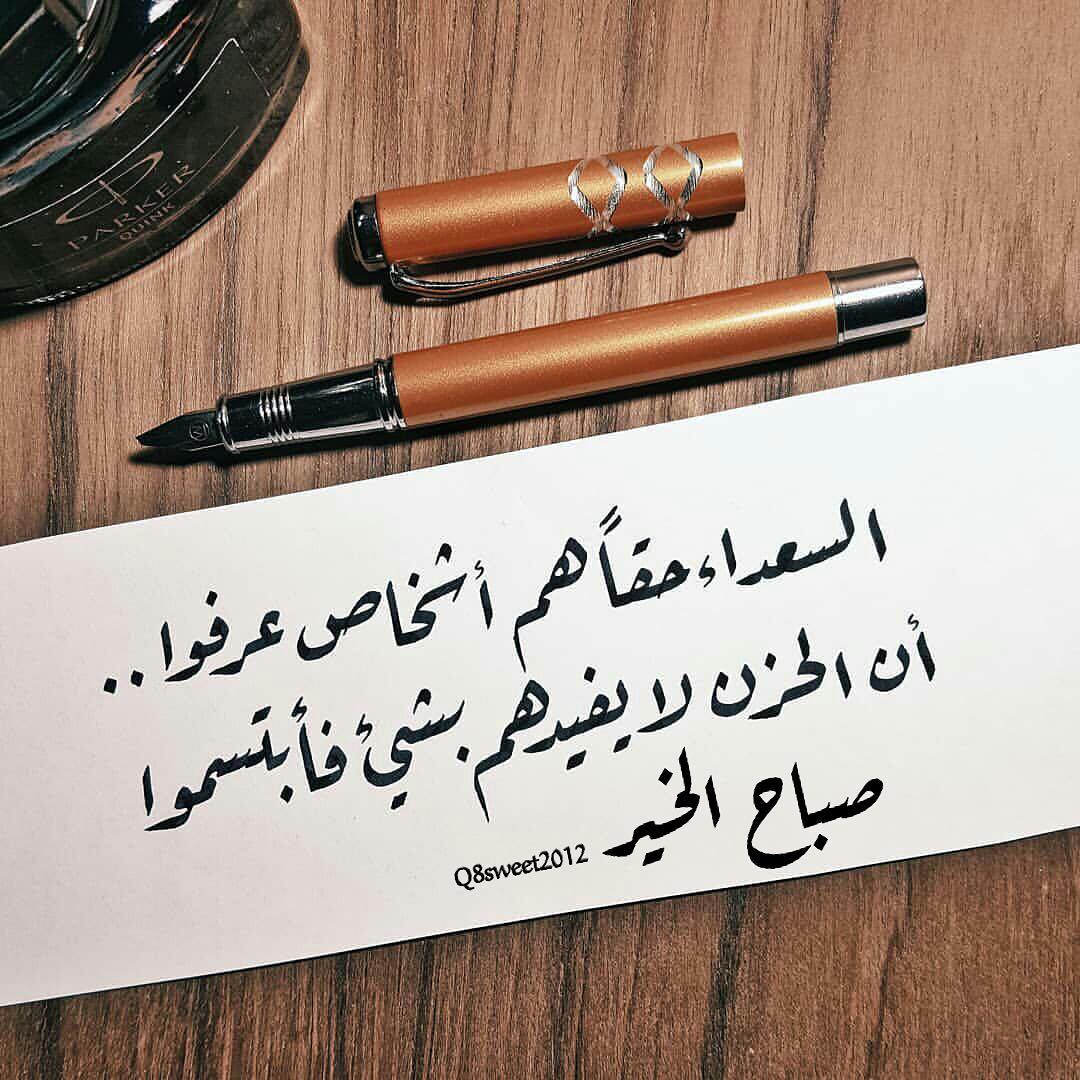 PARKER
QUINK
السعداء حقاً هم أشخاص عرفوا..
أن الحزن لا يفيدهم بشيئ فأبتسموا
صباح الخير
Q8sweet2012